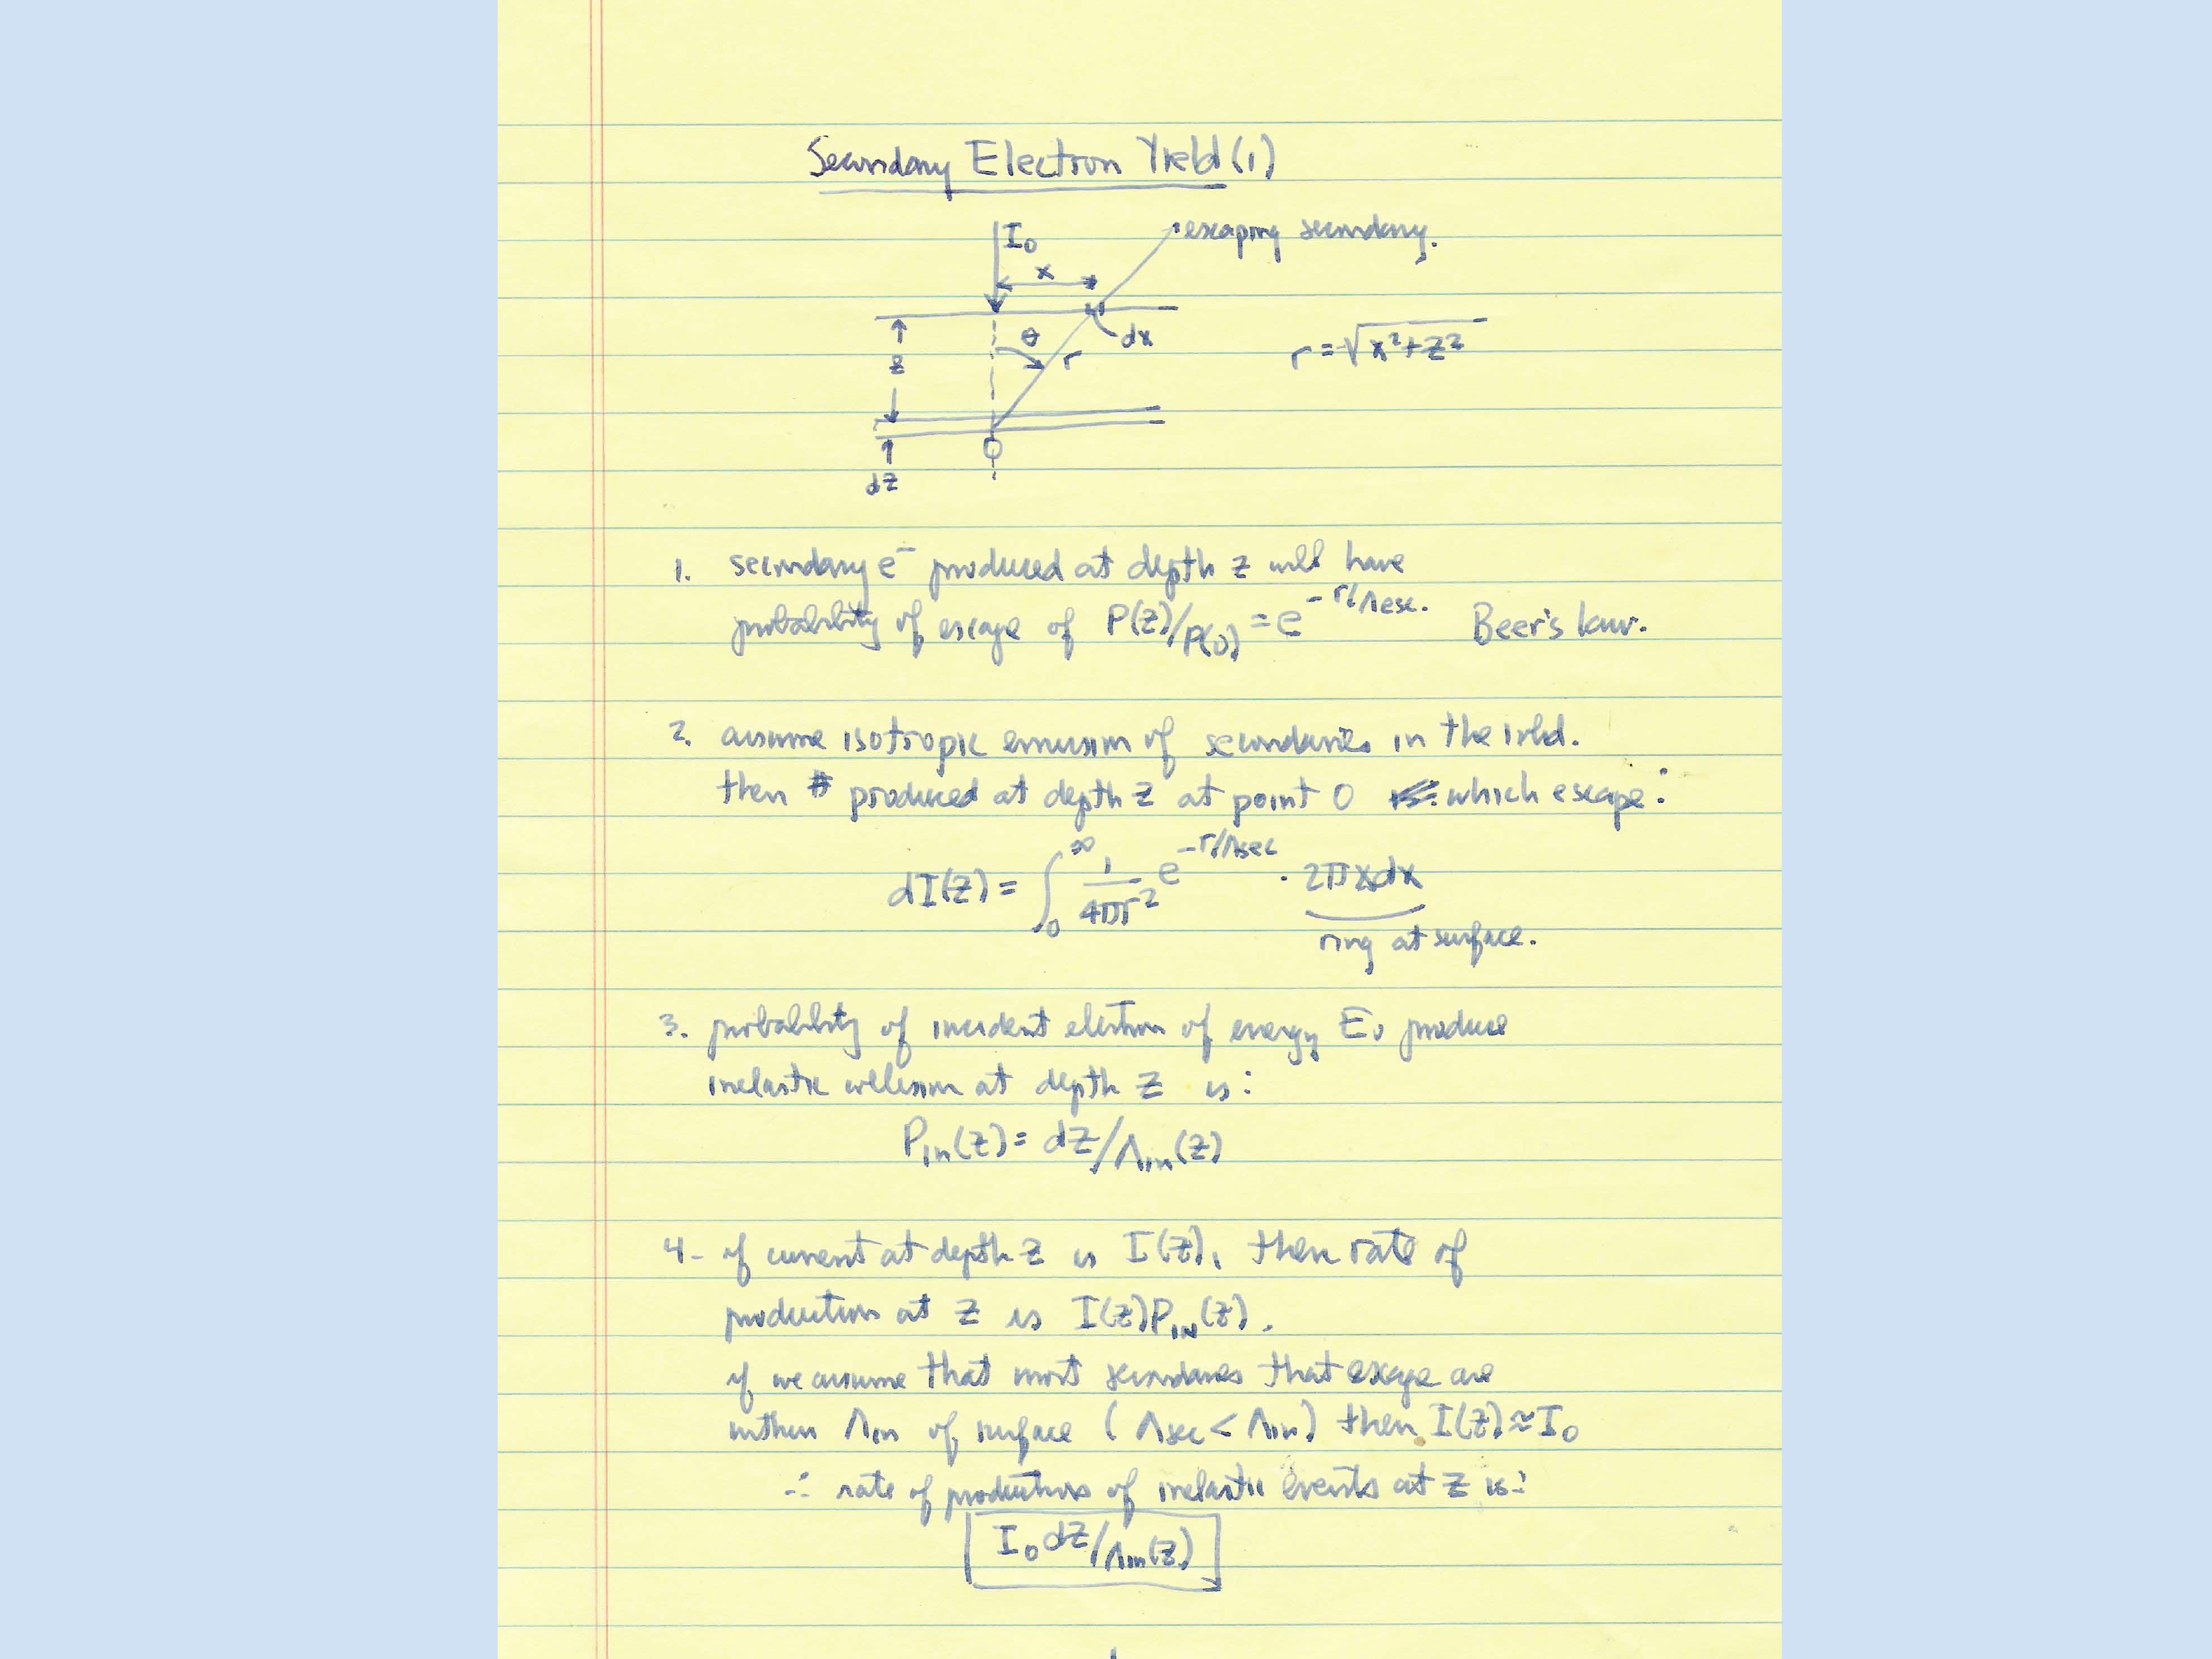 Secondary Electron Yield (1)
I₀
escaping secondary.
x
θ
dx
r
r = √x²+z²
z
O
dz
1. secondary e⁻ produced at depth z will have
probability of escape of P(z)/P(0) = e^-r/Λesc. Beer's law.
2. assume isotropic emission of secondaries in the solid.
then # produced at depth z at point O which escape:
dI(z) = ∫₀^∞ 1/4πr² e^-r/Λsec · 2πxdx
ring at surface.
3. probability of incident electron of energy E₀ produce
inelastic collision at depth z is:
Pin(z) = dz/Λin(z)
4- if current at depth z is I(z), then rate of
production at z is I(z)PIN(z).
if we assume that most secondaries that escape are
within Λin of surface (Λsec < Λin) then I(z) ≈ I₀
∴ rate of production of inelastic events at z is:
I₀ dz/Λin(z)